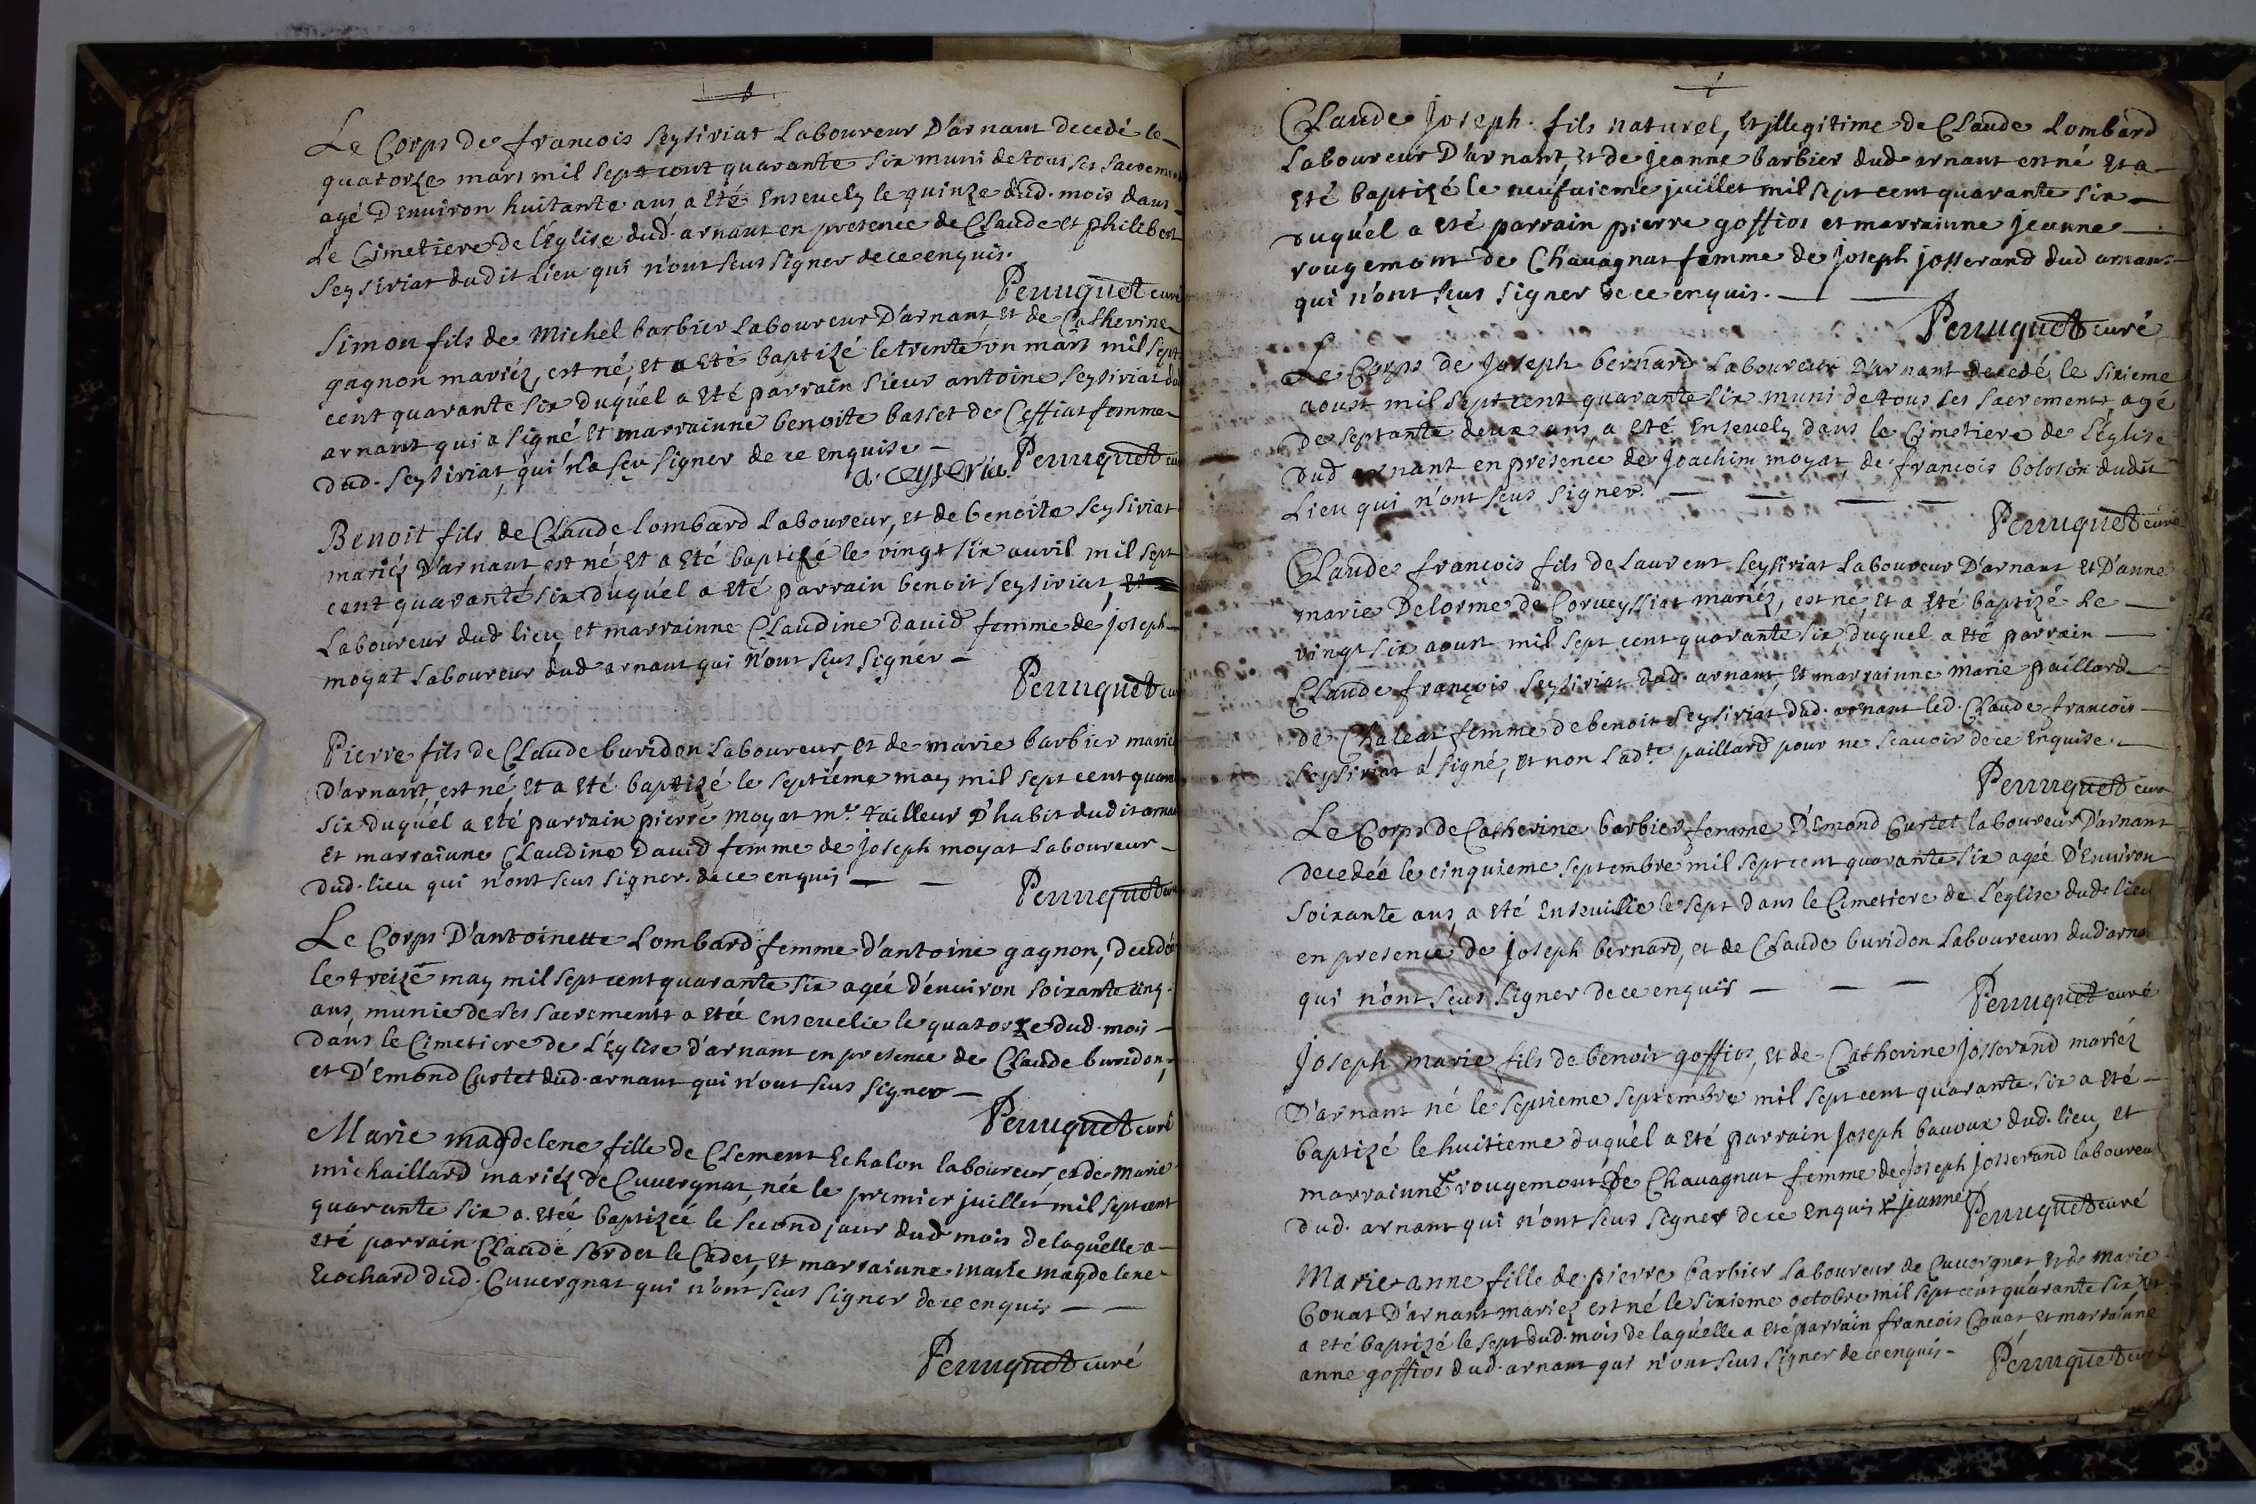 Le Corps de francois Seysiriat Laboureur D'arnant decedé le
quatorze mars mil sept cent quarante six muni de tous ses sacremen
agé D'enuiron huitante ans a Eté Enseuely le quinze dud. mois dans
Le Cimetiere de l'Eglise dud. arnant en presence de Claude et philibert
Seysiriat dudit Lieu qui n'ont sçus signer de ce enquis.
Perruquet curé
Simon fils de Michel barbier Laboureur D'arnant et de Catherine
gagnon mariéz, est né, et a Eté baptizé le trente un mars mil sept
cent quarante six duquél a Eté parrain sieur antoine Seysiriat du
arnant qui a signé Et marrainne benoite basset de Ceffiat femme
dud. Seysiriat, qui n'la sçu signer de ce enquise
a. ceyseria Perruquet cu
Benoit fils de Claude lombard Laboureur, et de benoite Seysiriat
mariéz D'arnant, est né, Et a Eté baptizé le vingt six auril mil sept
cent quarante six duquél a Eté parrain benoit Seysiriat, et
Laboureur dud lieu, et marrainne Claudine dauid femme de joseph
moyat Laboureur dud arnant qui n'ont sçus signér
Perruquet cu
Pierre fils de Claude buridon Laboureur, et de marie barbier marié
D'arnant, est né Et a Eté baptizé le septiéme may mil sept cent quara
six duquél a eté parrain pierre moyat m.e tailleur D'habit dudit arna
et marrainne Claudine Dauid femme de joseph moyat Laboureur
dud. lieu qui n'ont sçus signer de ce enquis
Perruquet cu
Le Corps D'antoinette Lombard femme d'antoine gagnon, decedé
le treize may mil sept cent quarante six agéé d'enuiron soixante cinq
ans, munie de ses sacrements a etéé enseuelie le quatorze dud. mois
dans le Cimetiere de L'Eglise d'arnant en presence de Claude buridon,
et D'Emond Curtet dud. arnant qui n'ont sçus signer
Perruquet curé
Marie magdelene fille de Clement Echalon laboureur, et de marie
michaillard mariéz de Cuuergnat, née le premier juillet mil sept cent
quarante six a etéé baptizéé le second jour dud mois de laquelle a
eté parrain Claude Sordet le Cadet, Et marrainne marie magdelene
Ecochard dud. Cuuergnat qui n'ont sçus signer de ce enquis
Perruquet curé
Claude Joseph fils naturel, Et jllegitime de Claude Lombard
Laboureur D'arnant, Et de jeanne barbier dud arnant est né Et a
Eté baptizé le neufuieme juillet mil sept cent quarante six
duquél a eté parrain pierre goffios et marrainne jeanne
rougemont de Chauagnat femme de joseph josserand dud arnant
qui n'ont sçus signer de ce enquis.
Perruquet curé
Le Corps de joseph bernard Laboureur D'arnant decedé le sixieme
aoust mil sept cent quarante six muni de tous ses sacrements agé
de septante deux ans a eté Enseuely dans le Cimetiere de l'église
dud arnant en présence de joachim moyat, de françois boloson dudit
Lieu qui n'ont sçus signer.
Perruquet curé
Claude françois fils de Laurent Seysiriat Laboureur D'arnant Et D'anne
marie Delorme de Corueyssiat mariéz, est né, Et a Eté baptizé Le
vingt six aoust mil sept cent quarante six, duquel a eté parrain
Claude françois Seysiriat dud. arnant, Et marrainne marie paillard
de Chaleat femme de benoit Seysiriat dud. arnant led. Claude françois
Seysiriat a signé, Et non Lad.te paillard pour ne scauoir de ce Enquise.
Perruquet cure
Le Corps de Catherine barbier femme D'Emond Curtet laboureur D'arnant
decedéé le cinquieme septembre mil sept cent quarante six agéé D'Enuiron
soixante ans a Eté Enseuilie le sept dans le Cimetiere de L'église dud. lieu
en presence de joseph bernard, et de Claude buridon Laboureurs dud arna
qui n'ont sçus signer de ce enquis
Perruquet curé
Joseph marie fils de benoit goffios, Et de Catherine josserand mariéz
D'arnant né le septieme septembre mil sept cent quarante six a eté
baptizé le huitieme duquél a Eté parrain joseph bauoux dud. lieu, et
marrainne x rougemont de Chauagnat femme de joseph josserand laboureur
dud. arnant qui n'ont sçus signer de ce Enquis x jeanne
Perruquet curé
Marie anne fille de pierre barbier Laboureur de Cuuergnat Et de marie
Couat D'arnant mariez est né le sixieme octobre mil sept cent quarante six Et
a eté baptizé le sept dud. mois de laquélle a eté parrain francois Couat et marrainne
anne goffios dud. arnant qui n'ont sçus signer de ce enquis
Perruquet curé